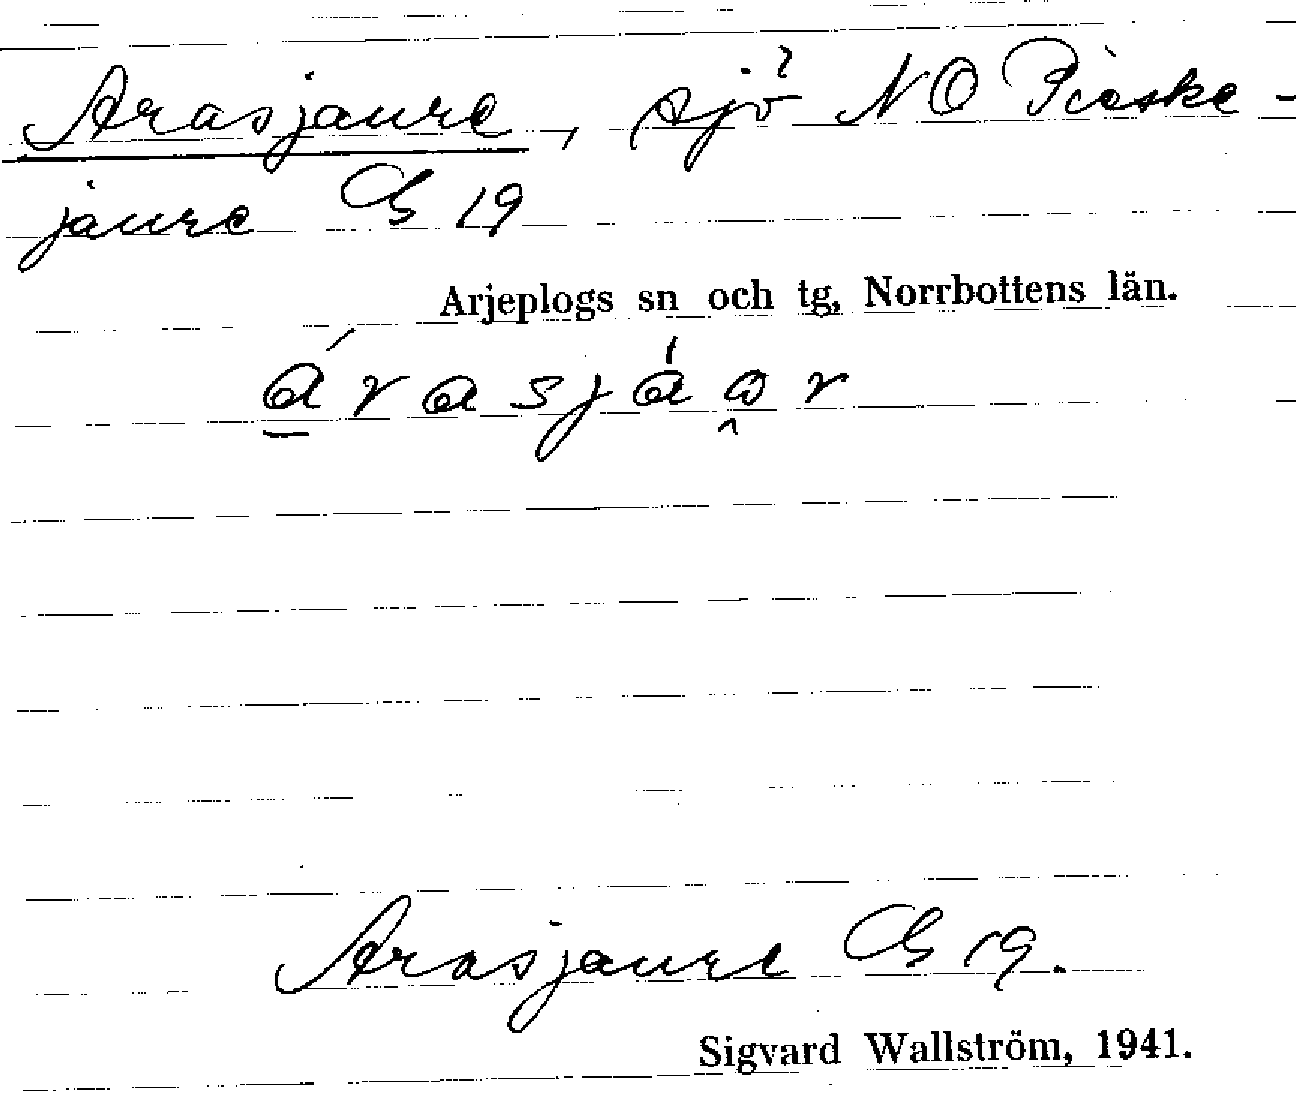 Arasjaure, sjö NO Pieske-
jaure G 19
Arjeplogs sn och tg, Norrbottens län.
árasjáor
Arasjaure G 19.
Sigvard Wallström, 1941.